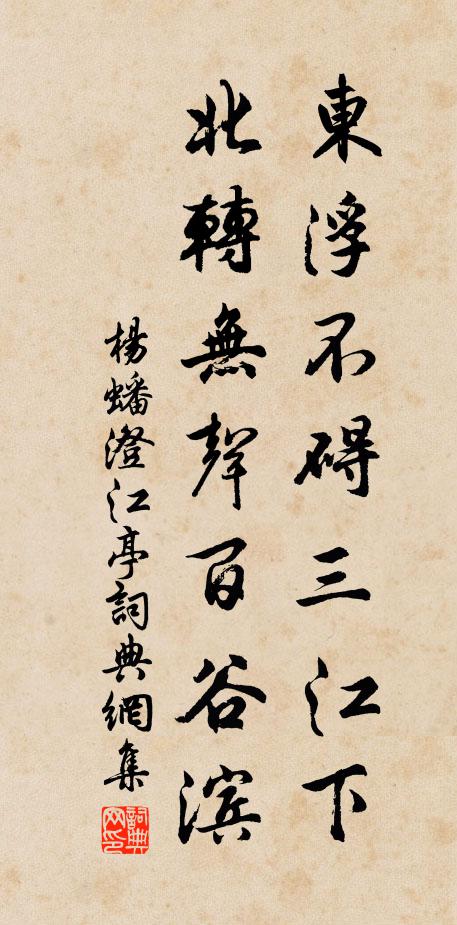 東浮不碍三江下
北轉無聲百谷滨
楊蟠澄江亭詞典網集
詞典网印